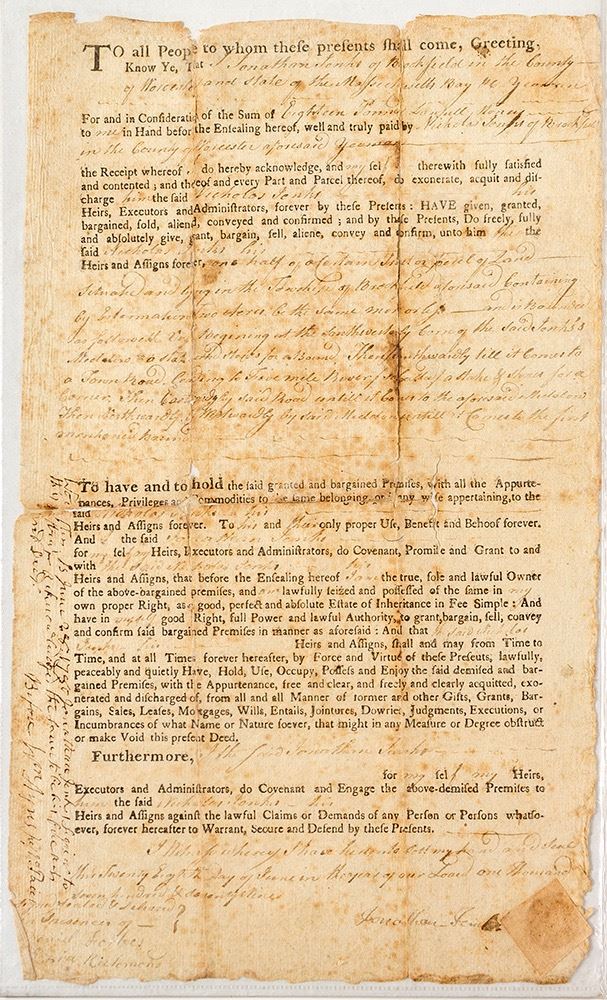 TO all People to whom these presents shall come, Greeting,
Know Ye, That I Jonathan Jenks of Brookfield in the County
of Worcester and State of the Massachusetts Bay Yeoman
For and in Consideration of the Sum of Eighteen Pounds Lawfull Money
to me in Hand before the Ensealing hereof, well and truly paid by Nicholas Jenks of Brookfield
in the County of Worcester aforesaid Yeoman
the Receipt whereof I do hereby acknowledge, and my self therewith fully satisfied
and contented; and thereof and every Part and Parcel thereof, do exonerate, acquit and dis-
charge him the said Nicholas Jenks his
Heirs, Executors and Administrators, forever by these Presents: HAVE given, granted,
bargained, sold, aliened, conveyed and confirmed; and by these Presents, Do freely, fully
and absolutely give, grant, bargain, sell, aliene, convey and confirm, unto him the
said Nicholas Jenks his
Heirs and Assigns forever, one half of a Certain of Land
Situate and lying in the Township of Brookfield aforesaid Containing
by Estermation two acres be the same more or less and is Bounded
as followeth Beginning at the Southwesterly Corner of the Said Jenks's
Meddow a Stake and Stones for a Bound, Then till it Comes to
a Town Road Leading to Five mile River a Stake & Stones for a
Corner, Then by Said Road untill it Comes to the aforesaid Meddow
Then by said Meddow untill it Comes to the first
mentioned Bound
To have and to hold the said granted and bargained Premises, with all the Appurte-
nances, Privileges and Commodities to the same belonging, or in any wise appertaining, to the
said Nicholas Jenks his
Heirs and Assigns forever. To his and their only proper Use, Benefit and Behoof forever.
And I the said Jonathan Jenks
for my self my Heirs, Executors and Administrators, do Covenant, Promise and Grant to and
with the Said Nicholas Jenks his
Heirs and Assigns, that before the Ensealing hereof I am the true, sole and lawful Owner
of the above-bargained premises, and am lawfully seized and possessed of the same in my
own proper Right, as a good, perfect and absolute Estate of Inheritance in Fee Simple: And
have in my self good Right, full Power and lawful Authority, to grant, bargain, sell, convey
and confirm said bargained Premises in manner as aforesaid: And that the said Nicholas
Jenks his Heirs and Assigns, shall and may from Time to
Time, and at all Times forever hereafter, by Force and Virtue of these Presents, lawfully,
peaceably and quietly Have, Hold, Use, Occupy, Possess and Enjoy the said demised and bar-
gained Premises, with the Appurtenance, free and clear, and freely and clearly acquitted, exo-
nerated and discharged of, from all and all Manner of former and other Gifts, Grants, Bar-
gains, Sales, Leases, Mortgages, Wills, Entails, Jointures, Dowries, Judgments, Executions, or
Incumbrances of what Name or Nature soever, that might in any Measure or Degree obstruct
or make Void this present Deed.
Furthermore, I the said Jonathan Jenks
for my self my Heirs,
Executors and Administrators, do Covenant and Engage the above-demised Premises to
him the said Nicholas Jenks his
Heirs and Assigns against the lawful Claims or Demands of any Person or Persons whatso-
ever, forever hereafter to Warrant, Secure and Defend by these Presents.
In Witness whereof I have hereunto set my hand and Seal
this Twenty Eighth day of June in the year of our Lord one Thousand
Seven hundred & Seventy Nine
Sealed & Delivered
in Presence of
Jonathan Jenks
Forbes
Richmond
Worcester ss June 28 Jonathan Jenks
acknowledged the to be his free act
and Deed
Before